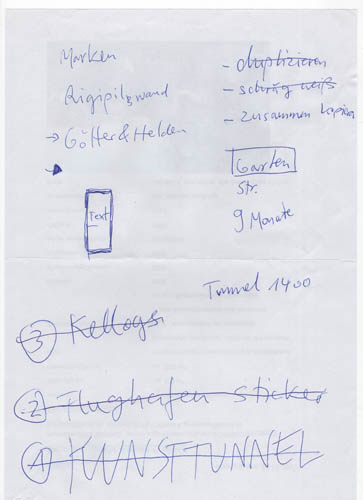 Marken
Rigipilzwand
→ Götter & Helden
Text
- duplizieren
- schräg weiß
- zusammen kopieren
Garten
Str.
9 Monate
Tunnel 1400
3 Kellogs
2 Flughafen sticker
1 KUNSTTUNNEL